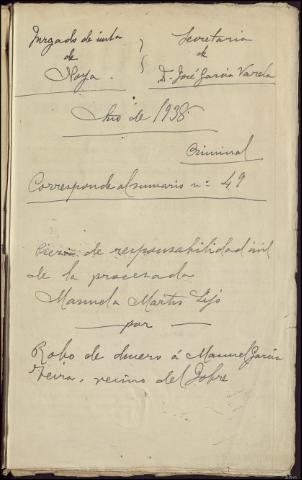 Juzgado de insta
de
Noya.
Secretaria
de
D. José García Varela
Año de 1938
Criminal
Corresponde al sumario nº 49
Pieza de responsabilidad civil
de la procesada
Manuela Martis Lijó
por
Robo de dinero á Manuel García
Veira, vecino del Sobre